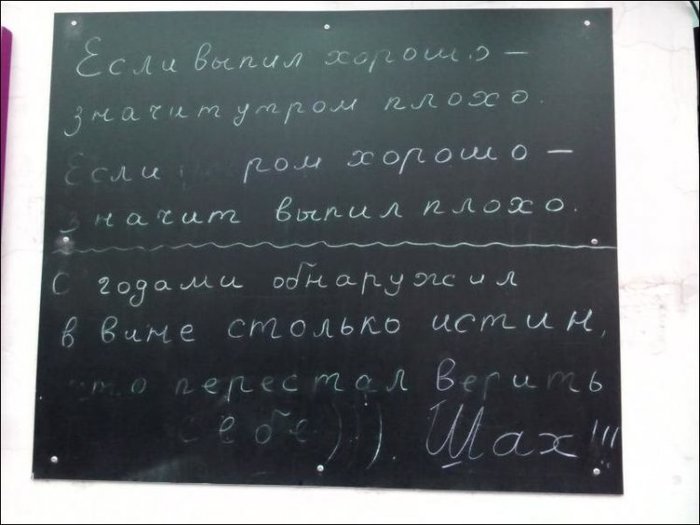 Если выпил хорошо –
значит утром плохо.
Если ром хорошо –
значит выпил плохо.
С годами обнаружил
в вине столько истин,
что перестал верить
себе))). Шах!!!